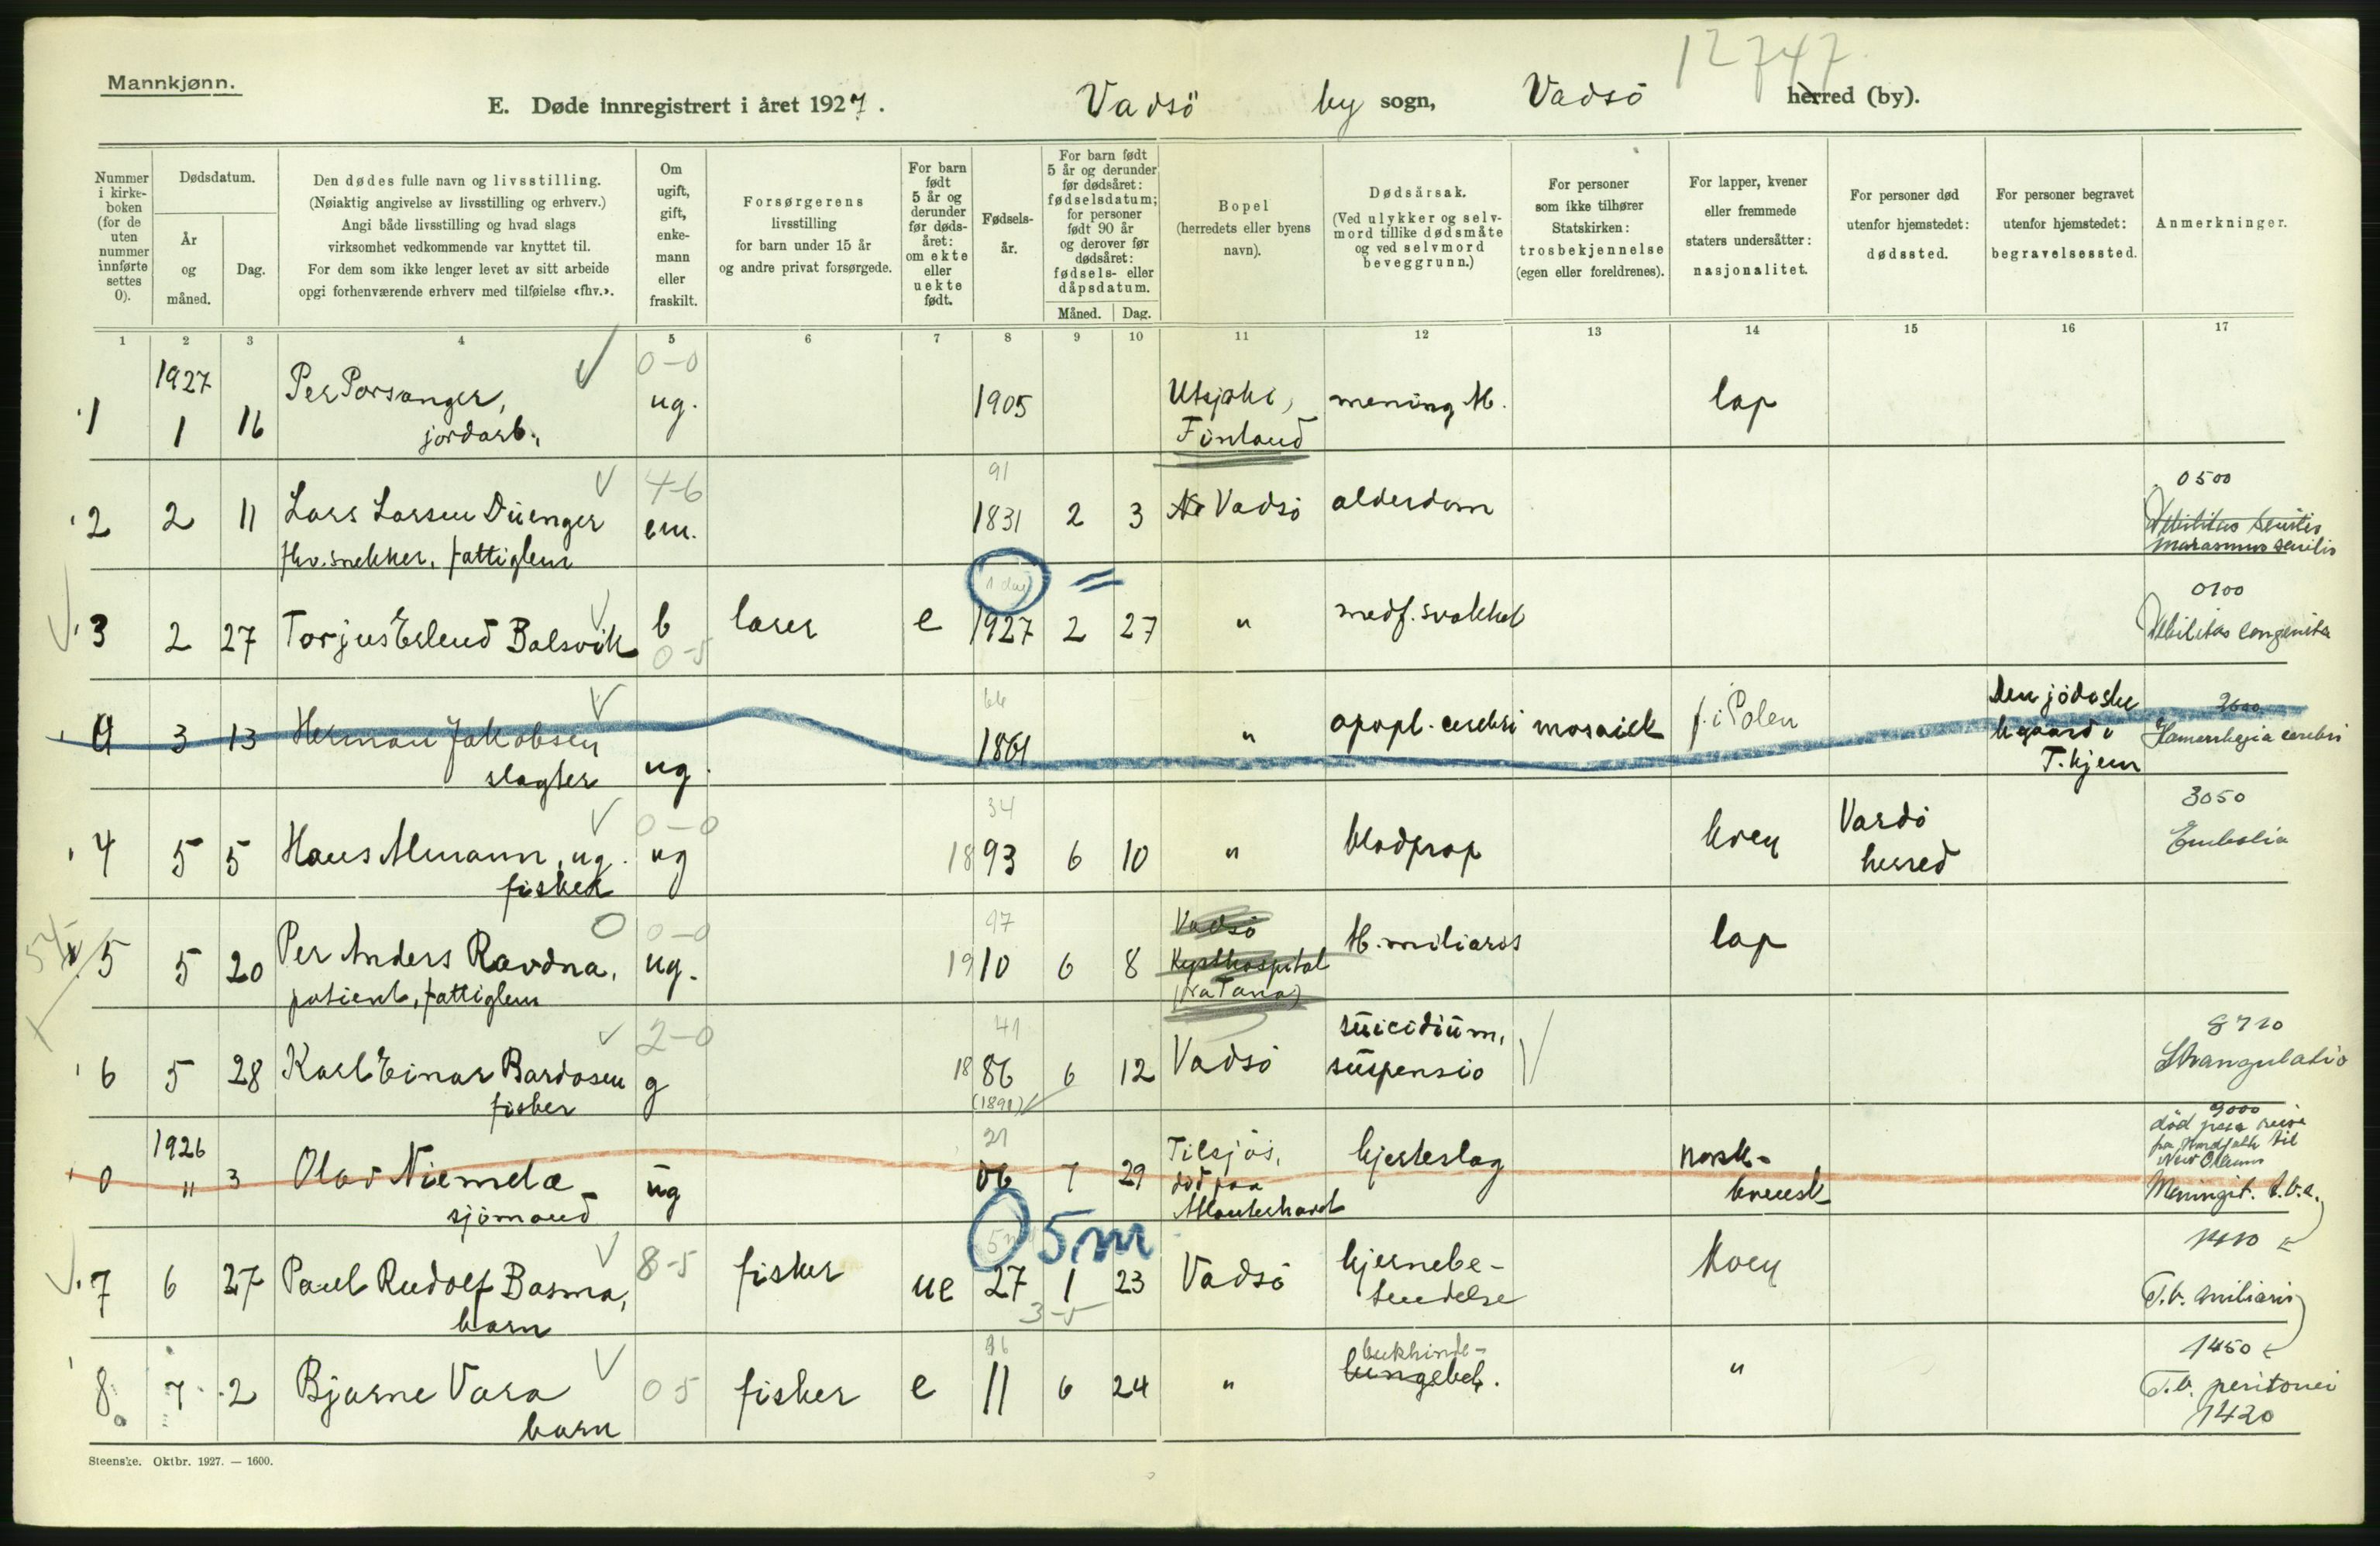 12747
Mannkjønn.
E. Døde innregistrert i året 1927. Vadsö by sogn, Vadsö herred (by).
Nummer i kirkeboken (for de uten nummer innførte settes 0).
Dødsdatum.
År og måned.
Dag.
Den dødes fulle navn og livsstilling.
(Nøiaktig angivelse av livsstilling og erhverv.)
Angi både livsstilling og hvad slags
virksomhet vedkommende var knyttet til.
For dem som ikke lenger levet av sitt arbeide
opgi forhenværende erhverv med tilføielse «fhv.».
Om ugift, gift, enkemann eller fraskilt.
Forsørgerens
livsstilling
for barn under 15 år
og andre privat forsørgede.
For barn født 5 år og derunder før dødsåret: om ekte eller uekte født.
Fødselsår.
For barn født 5 år og derunder før dødsåret: fødselsdatum; for personer født 90 år og derover før dødsåret: fødsels- eller dåpsdatum.
Måned.
Dag.
Bopel
(herredets eller byens
navn).
Dødsårsak.
(Ved ulykker og selvmord tillike dødsmåte og ved selvmord beveggrunn.)
For personer
som ikke tilhører
Statskirken:
trosbekjennelse
(egen eller foreldrenes).
For lapper, kvener
eller fremmede
staters undersåtter:
nasjonalitet.
For personer død
utenfor hjemstedet:
dødssted.
For personer begravet
utenfor hjemstedet:
begravelsessted.
Anmerkninger.
1 2 3 4 5 6 7 8 9 10 11 12 13 14 15 16 17
1927 0-0
1 1 16 Per Porsanger, ug. 1905 Utsjoki, mening tb. lap
jordarb., Finland
4-6 91 0500
2 2 11 Lars Larsen Duenger em. 1831 2 3 Vadsö alderdom Debilitas senilis
fhv. snekker, fattiglem marasmus senilis
1 dag = 0100
3 2 27 Torjus Erlend Balsvik b lærer e 1927 2 27 " medf. svakhet Debilitas congenita
0-5
66 Den jödiske
0 3 13 Herman Jakobsen ug. 1861 " apopl. cerebri mosaisk f. i Polen kgaard i Hæmorrhagia cerebri
slagter T.hjem
0-0 34 3050
4 5 5 Hans Almann, ug. ug 1893 6 10 " blodprop kven Vardö Embolia
fisker herred
0-0 17 Vadsö
5 5 20 Per Anders Ravdna, ug. 1910 6 8 Kysthospital tb. miliaris lap
patient, fattiglem (fra Tana)
2-0 41 suicidium, 8710
6 5 28 Karl Einar Bardosen g 1886 6 12 Vadsö suspensio Strangulatio
fisker (1891)
1926 21 9000
0 " 3 Olav Niemelæ ug 06 7 29 Tilsjös, hjerteslag norsk- död paa reise
sjömand död paa kvensk til New Orleans
Atlanterhavet Meningit. t.b.c.
8-5 5 m 5m
7 6 27 Paul Rudolf Basma, fisker ue 27 1 23 Vadsö hjernebe- kven
barn 3-5 tendelse T.b. miliaris
16 bukhinde- 1450
8 7 2 Bjarne Vara 05 fisker e 11 6 24 " lungebet. " T.b. peritonei
barn 1420
Steenske. Oktbr. 1927. — 1600.